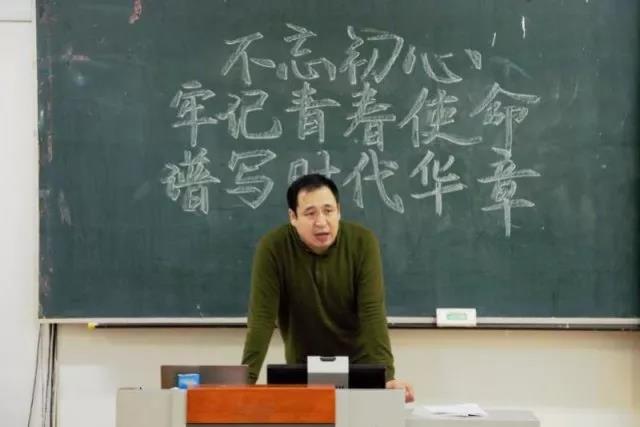 不忘初心、
牢记青春使命
谱写时代华章